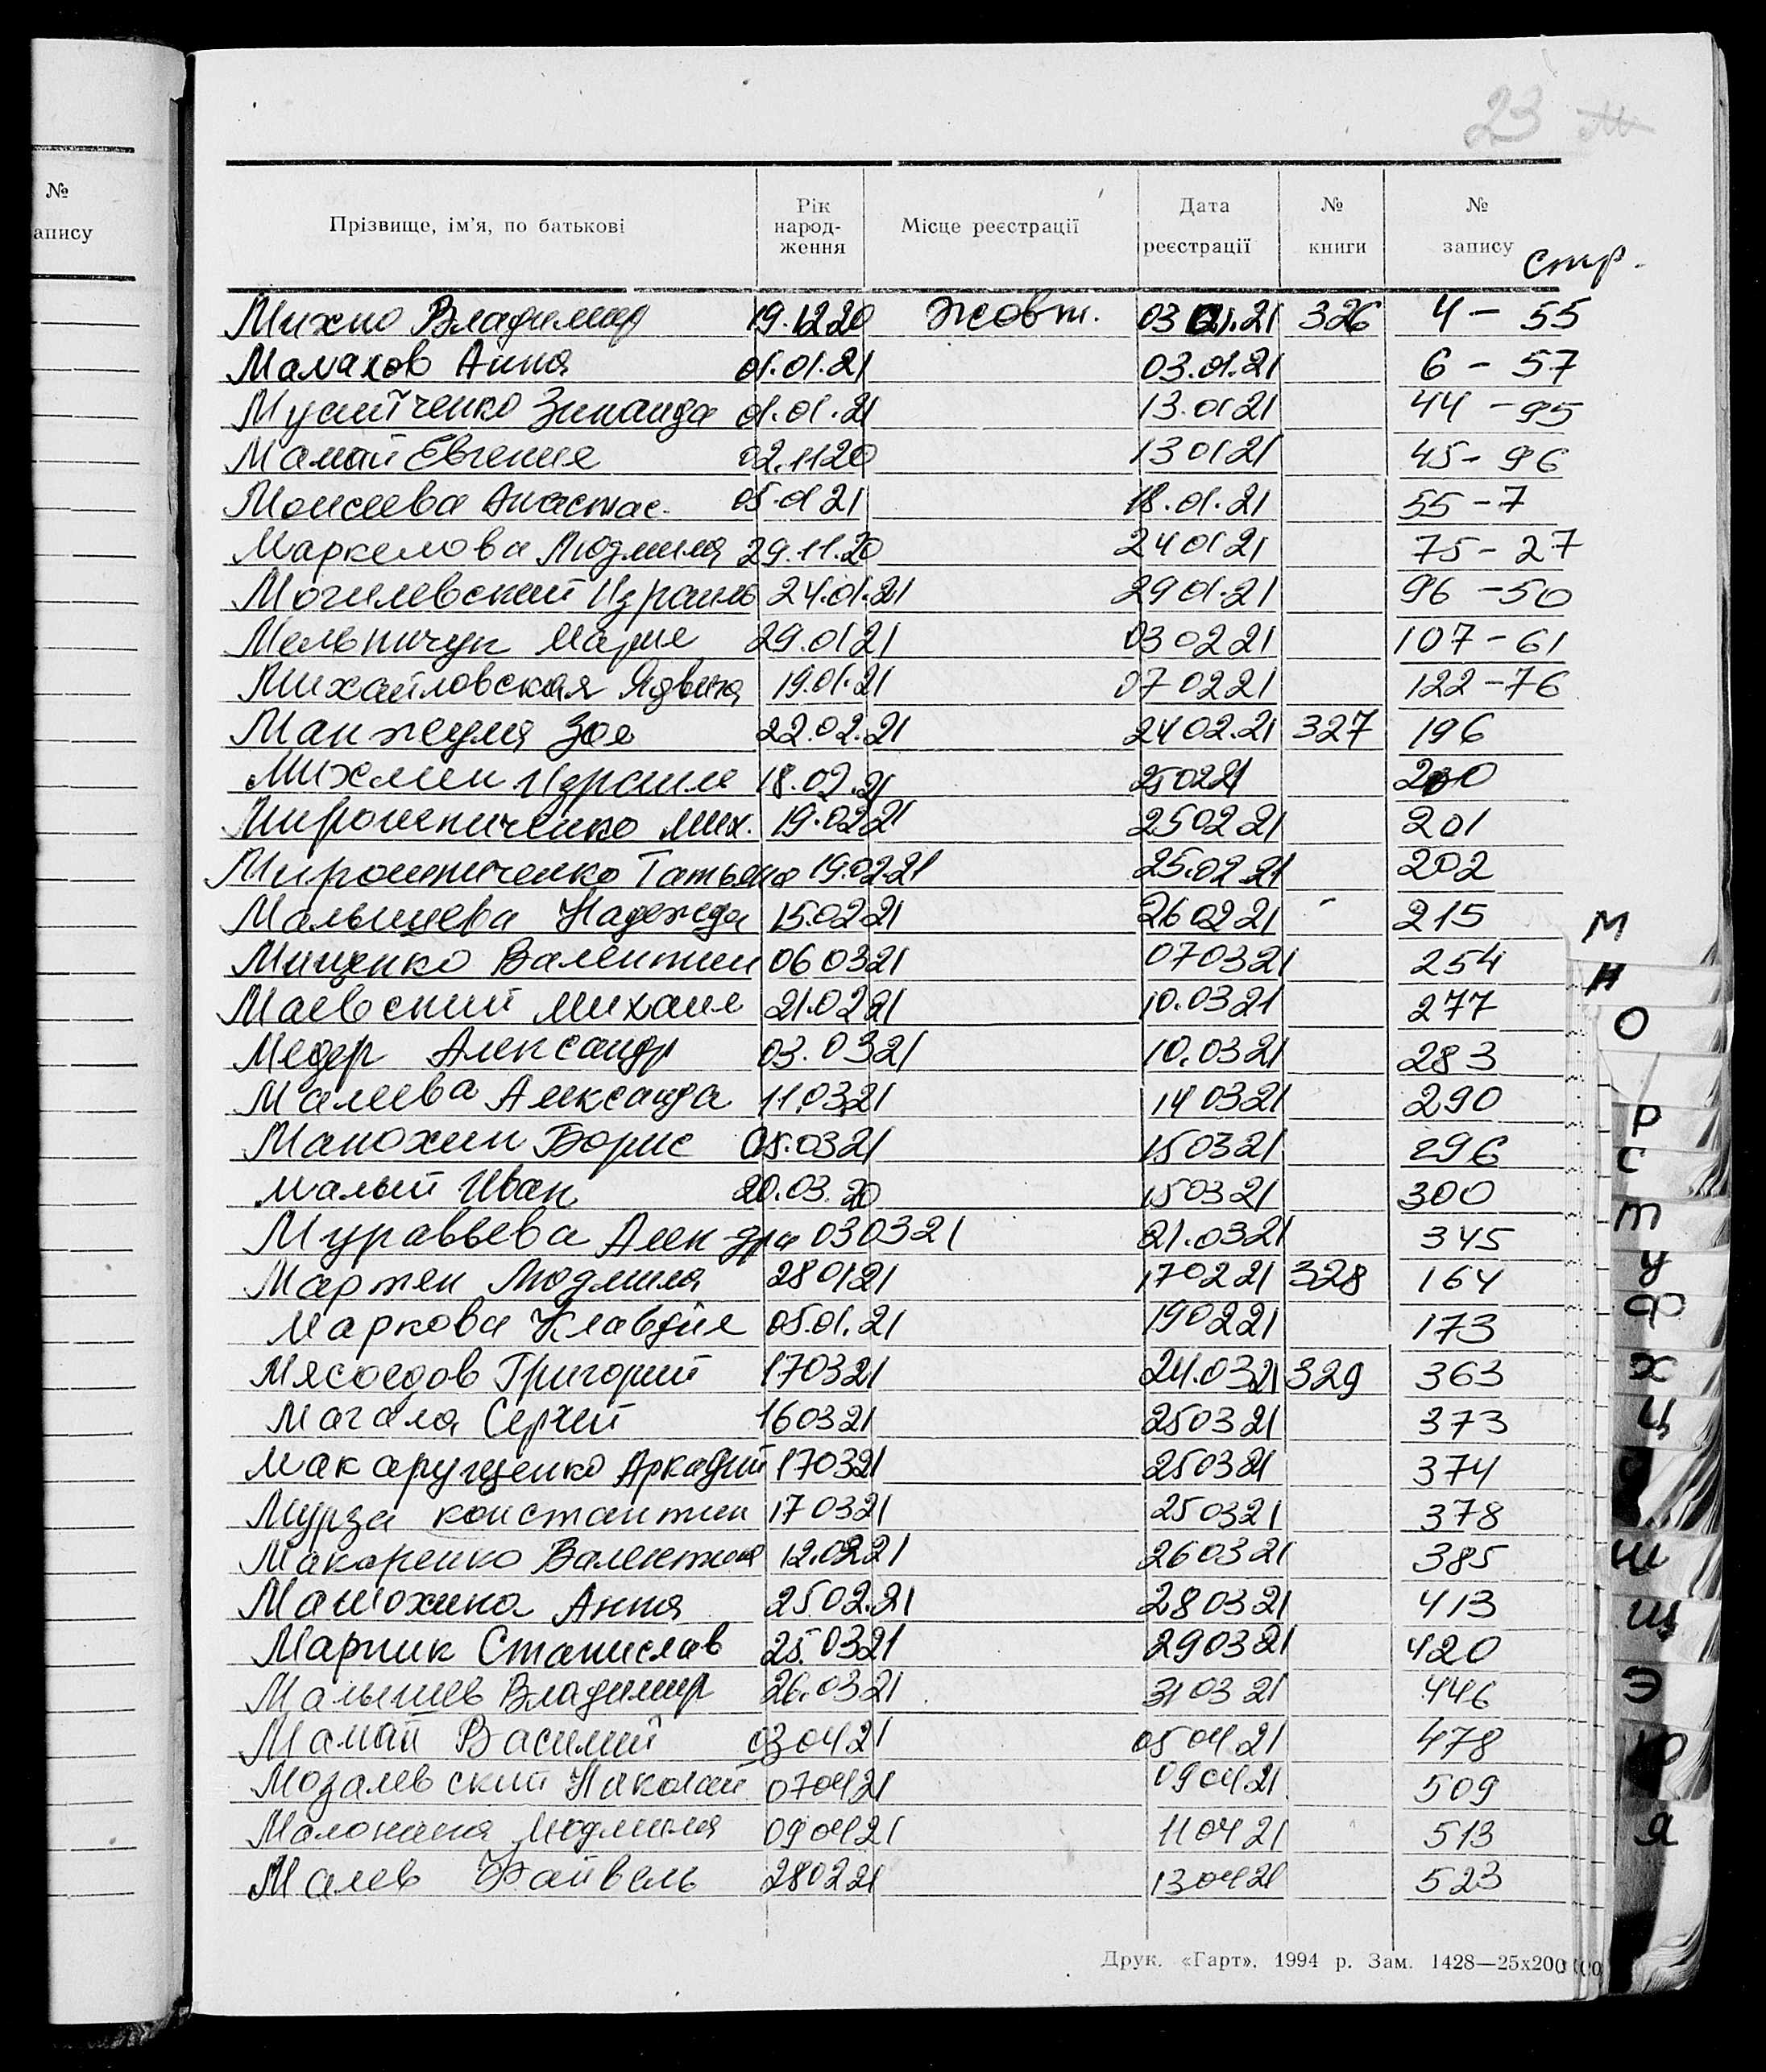 23 М
№
апису
Прізвище, ім'я, по батькові
Рік народ-ження
Місце реєстрації
Дата реєстрації
№ книги
№ запису
стр.
Михно Владимир 19.12.20 Жовт. 03.01.21 326 4 - 55
Малахов Анна 01.01.21 03.01.21 6 - 57
Мусийченко Зинаида 01.01.21 13.01.21 44 - 95
Мамай Евгения 02.11.20 130121 45 - 96
Моисеева Анастас. 05.01.21 18.01.21 55 - 7
Маркелова Людмила 29.11.20 240121 75 - 27
Могилевский Израиль 24.01.21 2901.21 96 - 50
Мельничук Мария 29.01.21 030221 107 - 61
Михайловская Ядвига 19.01.21 070221 122 - 76
Манжула Зоя 22.02.21 2402.21 327 196
Михлин Израиль 18.02.21 250221 200
Мирошниченко Мих. 19.0221 250221 201
Мирошниченко Татьяна 19.02.21 25.02.21 202
Малышева Надежда 15.0221 260221 215
Мищенко Валентин 060321 070321 254
Маевский Михаил 21.0221 10.0321 277
Медер Александр 03.0321 10.0321 283
Малеева Александра 11.03.21 140321 290
Манохин Борис 05.0321 150321 296
Малый Иван 20.03.20 150321 300
Муравьева Алек-дра 030321 21.0321 345
Мартен Людмила 280121 170221 328 164
Маркова Клавдия 05.01.21 190221 173
Мясоедов Григорий 170321 24.0321 329 363
Магала Сергей 160321 250321 373
Макарущенко Аркадий 170321 250321 374
Мурза Константин 170321 250321 378
Макаренко Валентина 12.0221 260321 385
Манохина Анна 2502.21 280321 413
Марчик Станислав 25.0321 290321 420
Малышев Владимир 26.0321 310321 446
Мамай Василий 030421 050421 478
Мозалевский Николай 070421 090421 509
Малонина Людмила 090421 110421 513
Малев Файвель 280221 130421 523
М
Н
О
Р
С
Т
У
Ф
Х
Ц
Ш
Щ
Э
Ю
Я
Друк. «Гарт». 1994 р. Зам. 1428—25х200